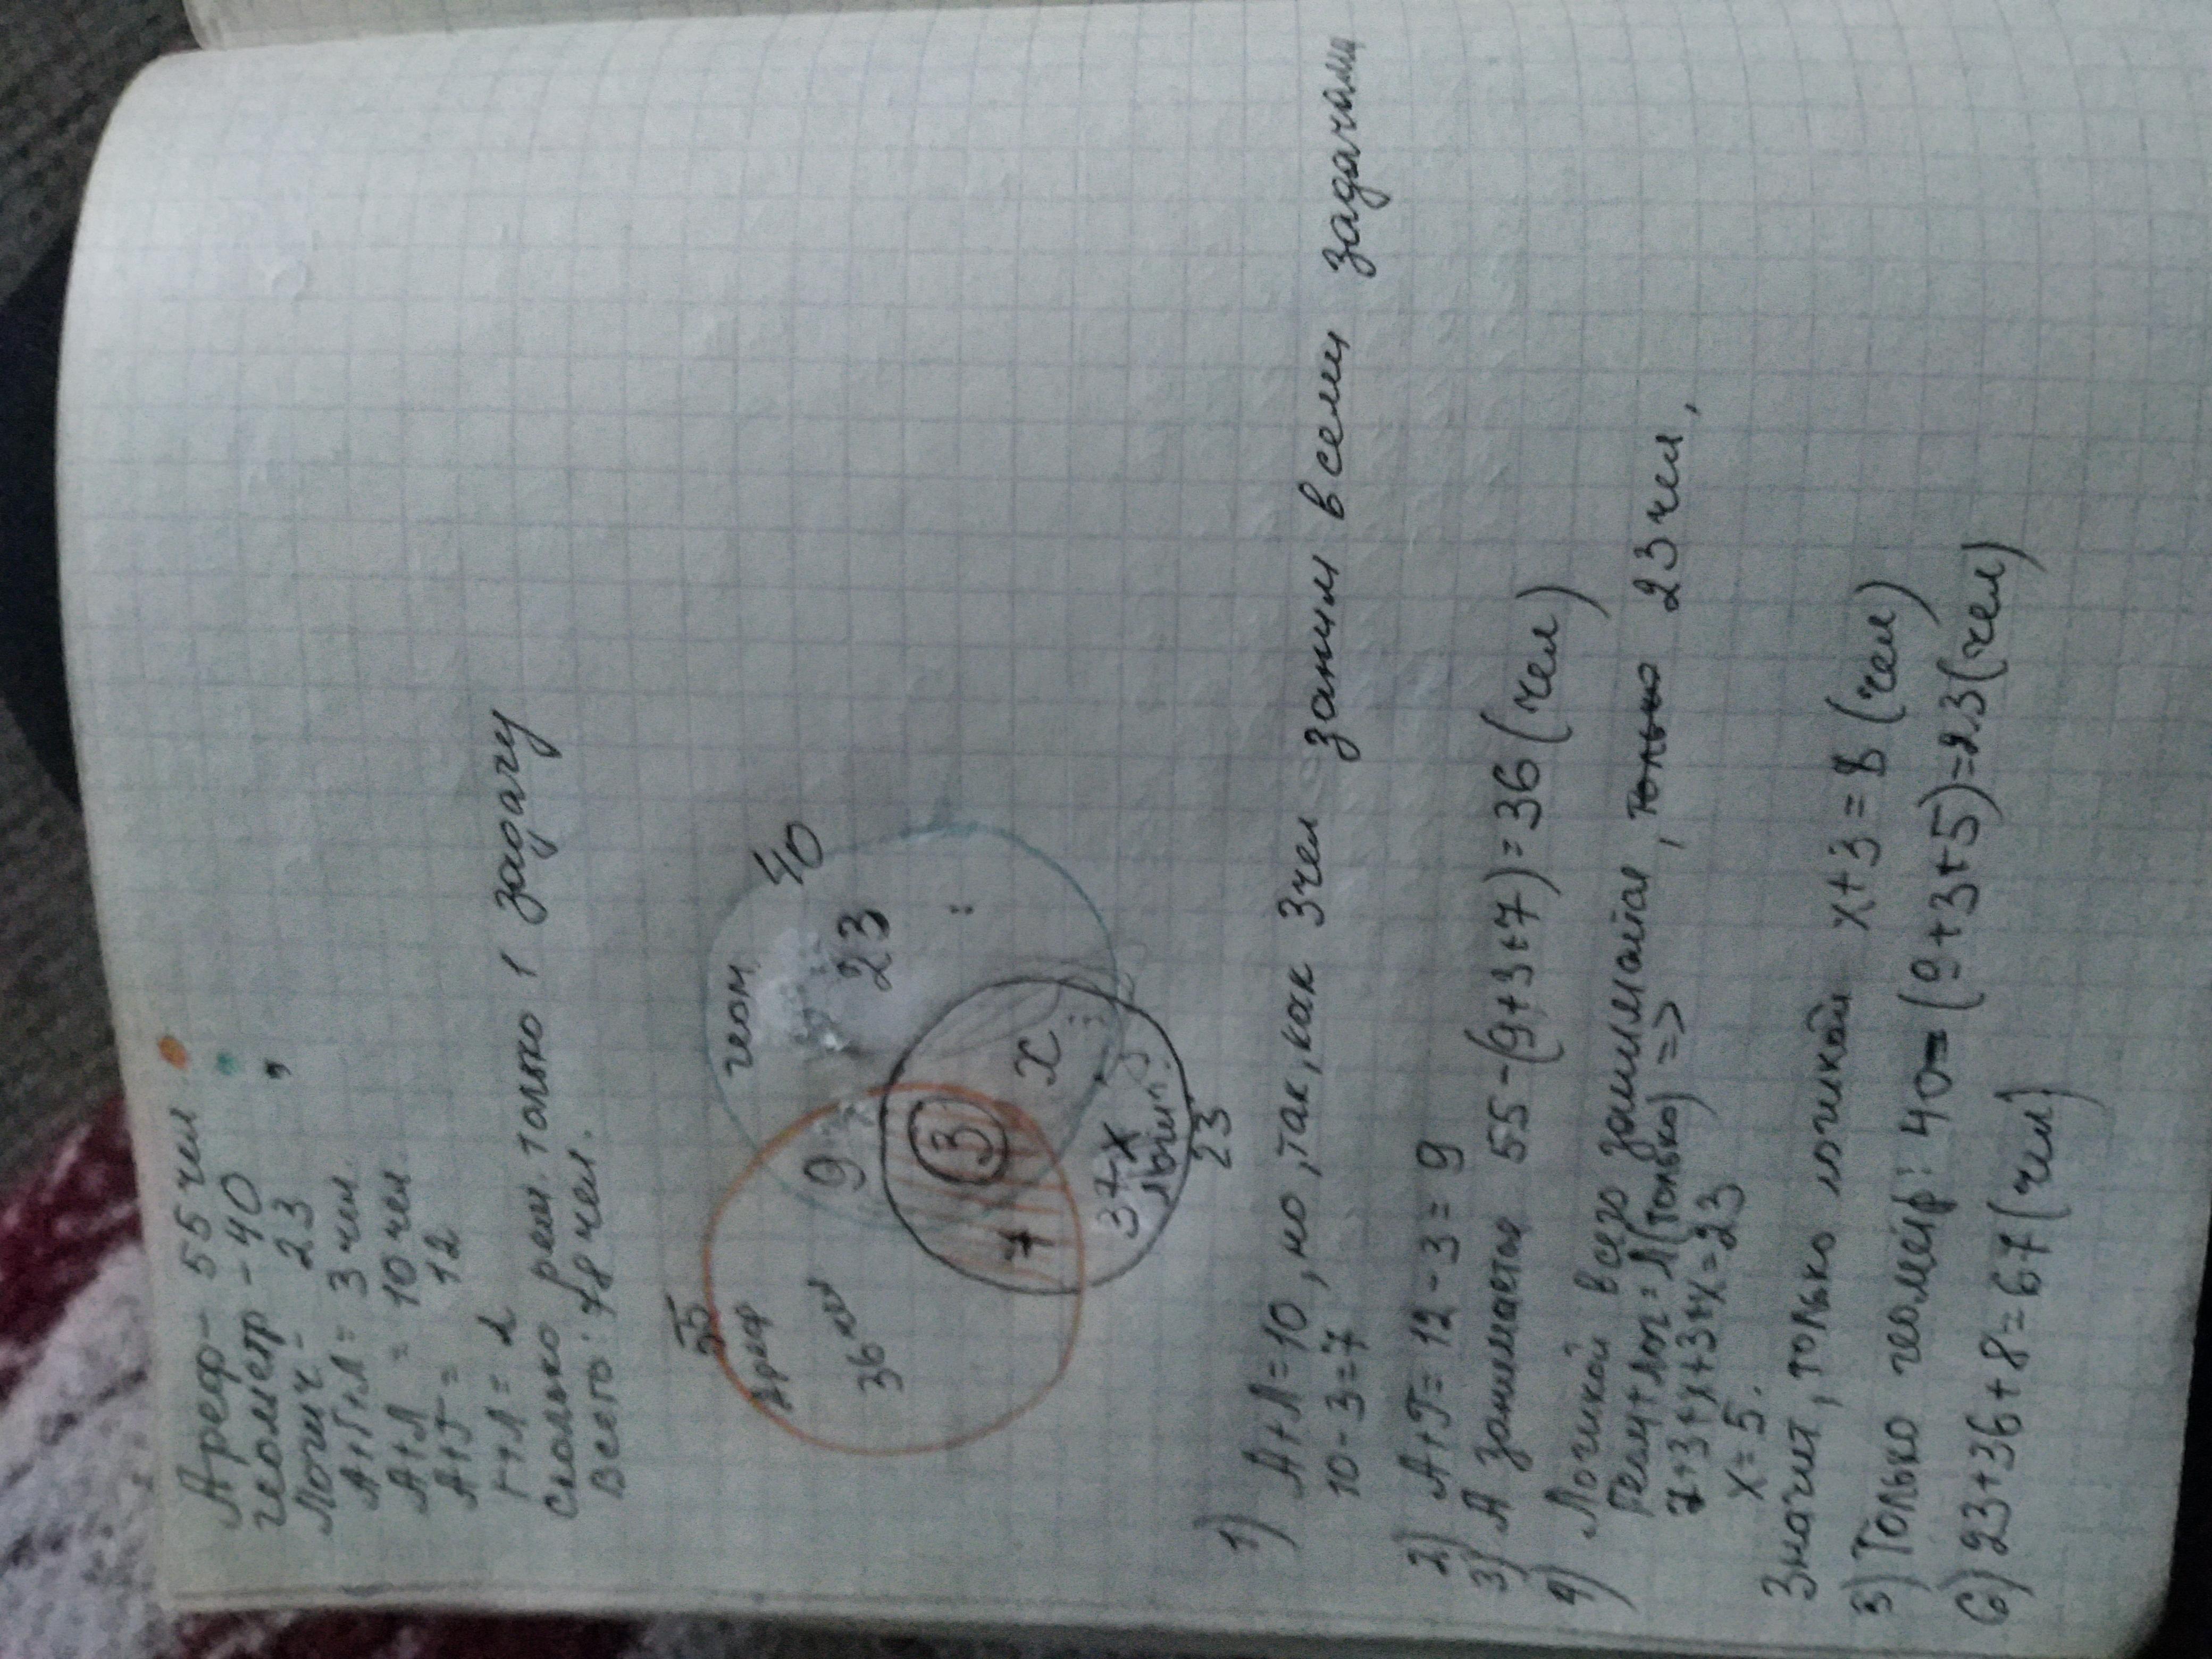 Ареф - 55 чел.
геометр - 40
Логич - 23
А+Г+Л = 3 чел.
А+Л = 10 чел.
А+Г = 12
Г+Л =
Сколько реш. только 1 задачу
Всего: 78 чел.
55
40
Ареф
геом.
36 чел
9
23
3
7
x
3+x
логич.
23
1) А+Л=10, но, так, как 3 чел заним всеми задачами
10-3=7
2) А+Г= 12-3= 9
3) А занимается 55-(9+3+7)=36 (чел)
4) Логикой всего занимаются, только 23 чел,
Геом+лог = Л(только) =>
7+3+x+3+x=23
x=5.
Значит, только логикой x+3=8 (чел)
3) Только геометр: 40-(9+3+5)=23(чел)
6) 23+36+8=67(чел)